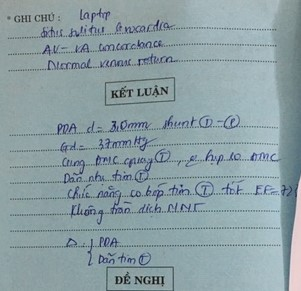 * GHI CHÚ : Laptop
Situs solitus levocardia
AV - VA concordance
Normal venous return
KẾT LUẬN
PDA d = 3,0mm shunt (T) - (P)
Gd = 37mmHg
Cung ĐMC quay (T), ø hẹp eo ĐMC
Dãn nhẹ tim (T)
Chức năng co bóp tim (T) tốt EF = 72%
Không tràn dịch MNT
Δ : { PDA
{ Dãn tim (T)
ĐỀ NGHỊ